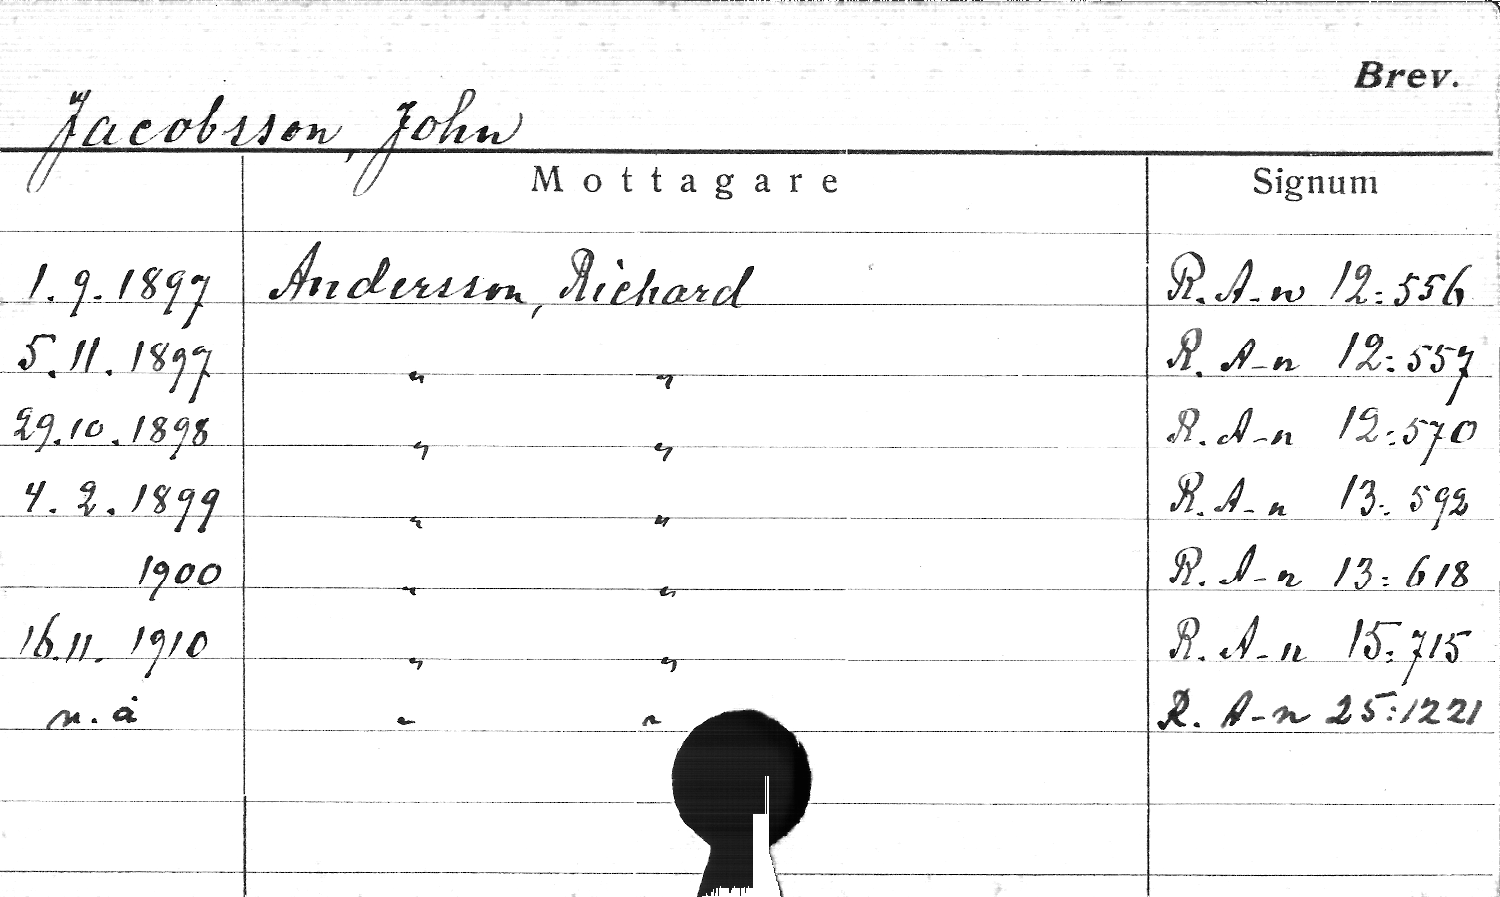 Brev.
Jacobsson, John
Mottagare Signum
1. 9. 1897 Andersson, Richard R. A-n 12:556
5. 11. 1897 " " R. A-n 12:557
29.10.1898 " " R. A-n 12:570
4. 2. 1899 " " R. A-n 13:592
1900 " " R. A-n 13:618
16.11. 1910 " " R. A-n 15:715
n. å " " R. A-n 25:1221